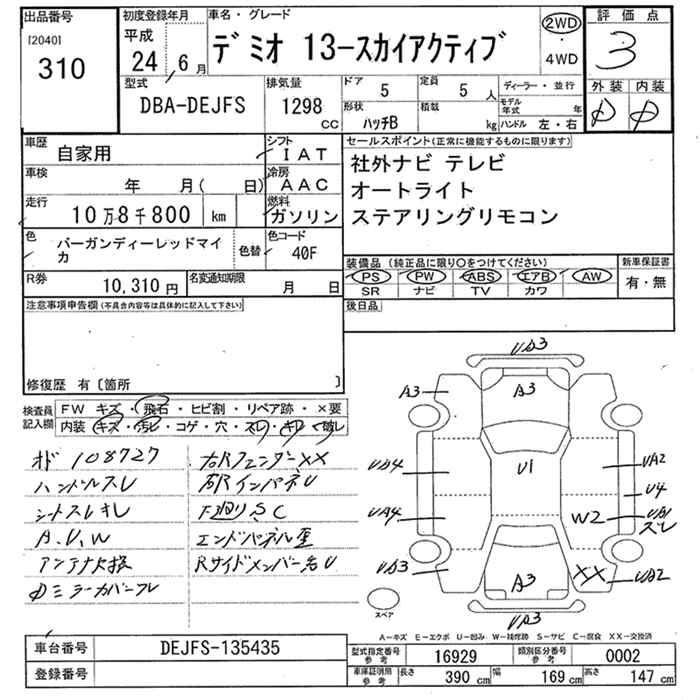 出品番号
[2040]
310
初度登録年月
平成
24 6月
車名・グレード
デミオ 13-スカイアクティブ
2WD
・
4WD
評価点
3
型式
DBA-DEJFS
排気量
1298
CC
ドア
5
定員
5 人
形状
ハッチB
積載
kg
ディーラー・並行
モデル年式 年
ハンドル 左・右
外装 内装
D D
車歴
自家用
シフト
IAT
車検
年 月( 日)
冷房
AAC
走行
10万8千800 km
燃料
ガソリン
色
バーガンディーレッドマイカ
色替
色コード
40F
R券
10,310円
名変通知期限
月 日
セールスポイント(正常に機能するものに限ります)
社外ナビ テレビ
オートライト
ステアリングリモコン
装備品(純正品に限り○をつけてください)
PS PW ABS エアB AW
SR ナビ TV カワ
新車保証書
有・無
注意事項申告欄(不具合内容等は具体的に記入して下さい)
後日品
修復歴 有〔箇所 〕
検査員記入欄
FW キズ・飛石・ヒビ割・リペア跡・×要
内装 キズ・汚レ・コゲ・穴・スレ・キレ・破レ
メド 108727
ハンドルスレ
シートスレキレ
A.U.W
アンテナ欠損
ミラーカバースレ
右Rフェンダー××
インパネU
F廻りS.C
エンドパネル歪
Rサイドメンバー右U
UA3
A3
A3
U1
UA4
UA4
UA3
UA2
U4
UB1
スレ
W2
××
UA2
A3
UA3
スペア
A-キズ E-エクボ U-凹み W-補修跡 S-サビ C-腐食 XX-交換済
車台番号
DEJFS-135435
登録番号
型式指定番号参考
16929
類別区分番号参考
0002
車庫証明用参考
長さ 390cm
幅 169cm
高さ 147cm